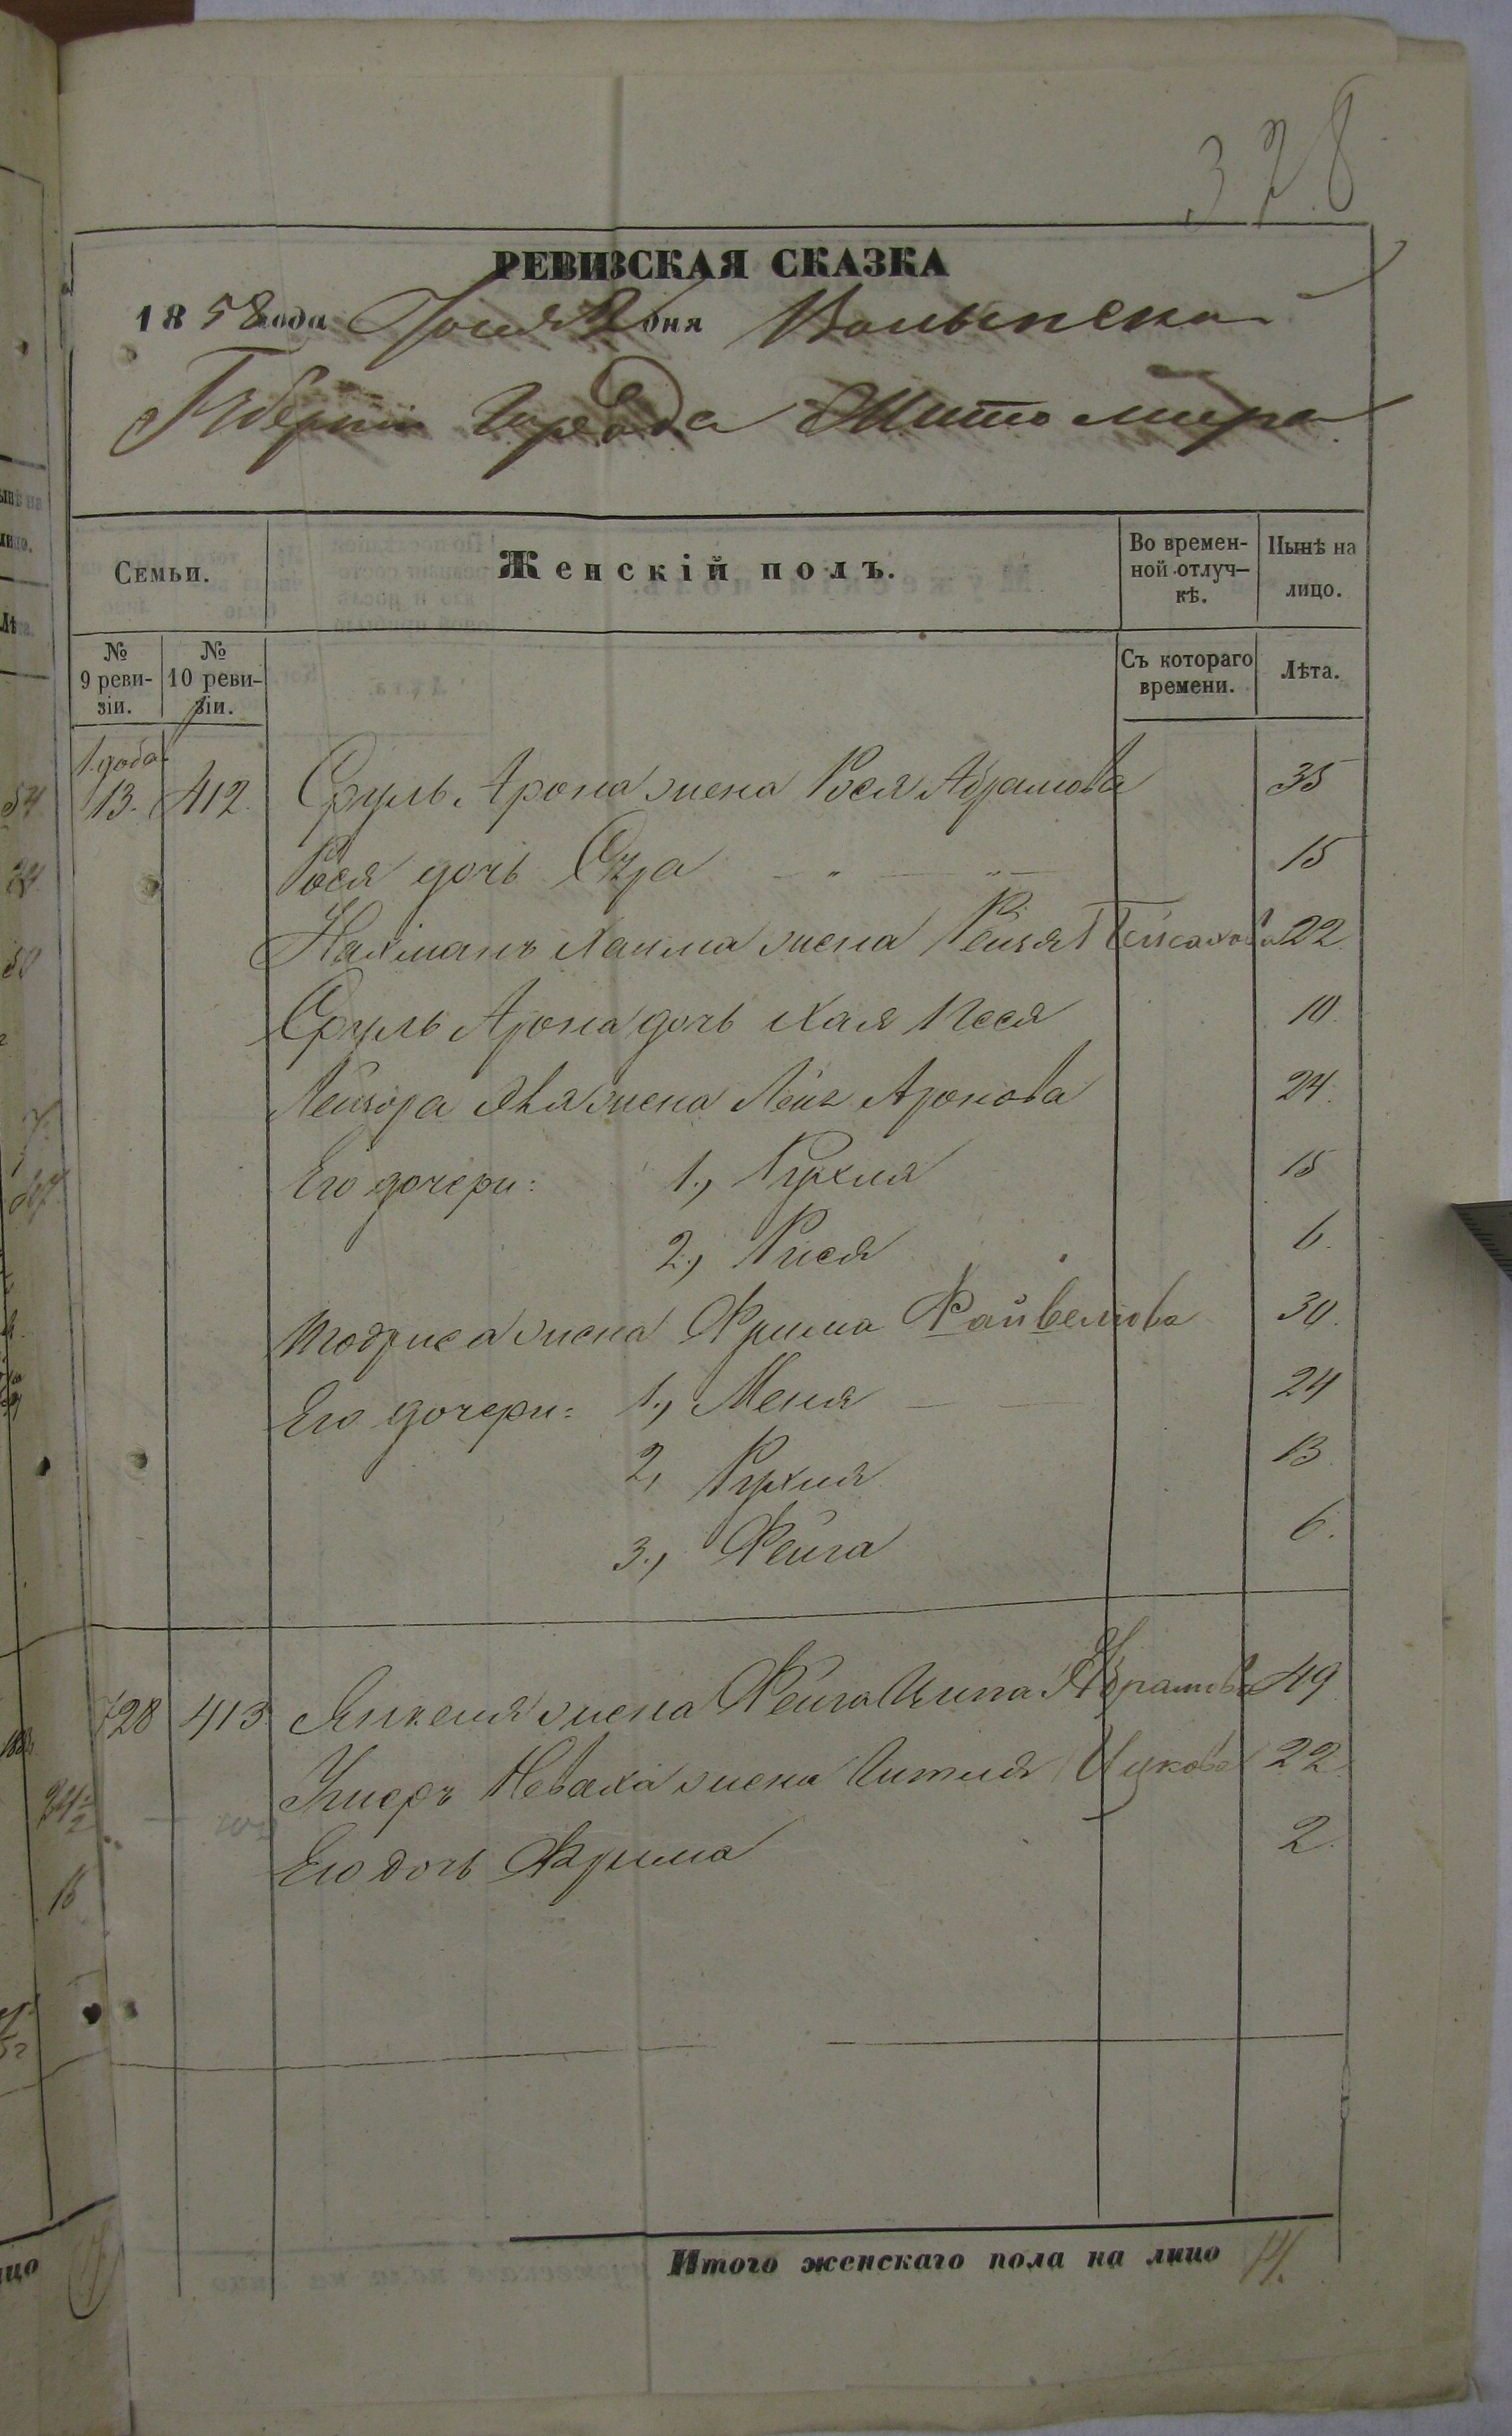 328
РЕВИЗСКАЯ СКАЗКА
1858 года Іюня 2 дня Волынской
Губерніи Города Житомира
Семьи.
Женскій полъ.
Во времен-
ной отлуч-
кѣ.
Нынѣ на
лицо.
№
9 реви-
зіи.
№
10 реви-
зіи.
Съ котораго
времени.
Лѣта.
1. доба.
13. 412. Сруль Арона жена Рося Абрамова 35
Рося дочь 15
Нахманъ Хаима жена Рейзя Пейсахова 22.
Сруль Арона дочь Хая Песя 10.
Лейзора жена Аронова 24.
Его дочери: 1., Рухля 15
2., Рися 6.
жена Фрима Файвелиова 30.
Его дочери: 1., Меня 24
2, Рухля 13.
3., Фейга 6.
728 413 Янкеля жена Фейга Ципа Абрамова 49
жена Гитля Ицкова 22.
Его дочь Фрима 2.
Итого женскаго пола на лицо 14.